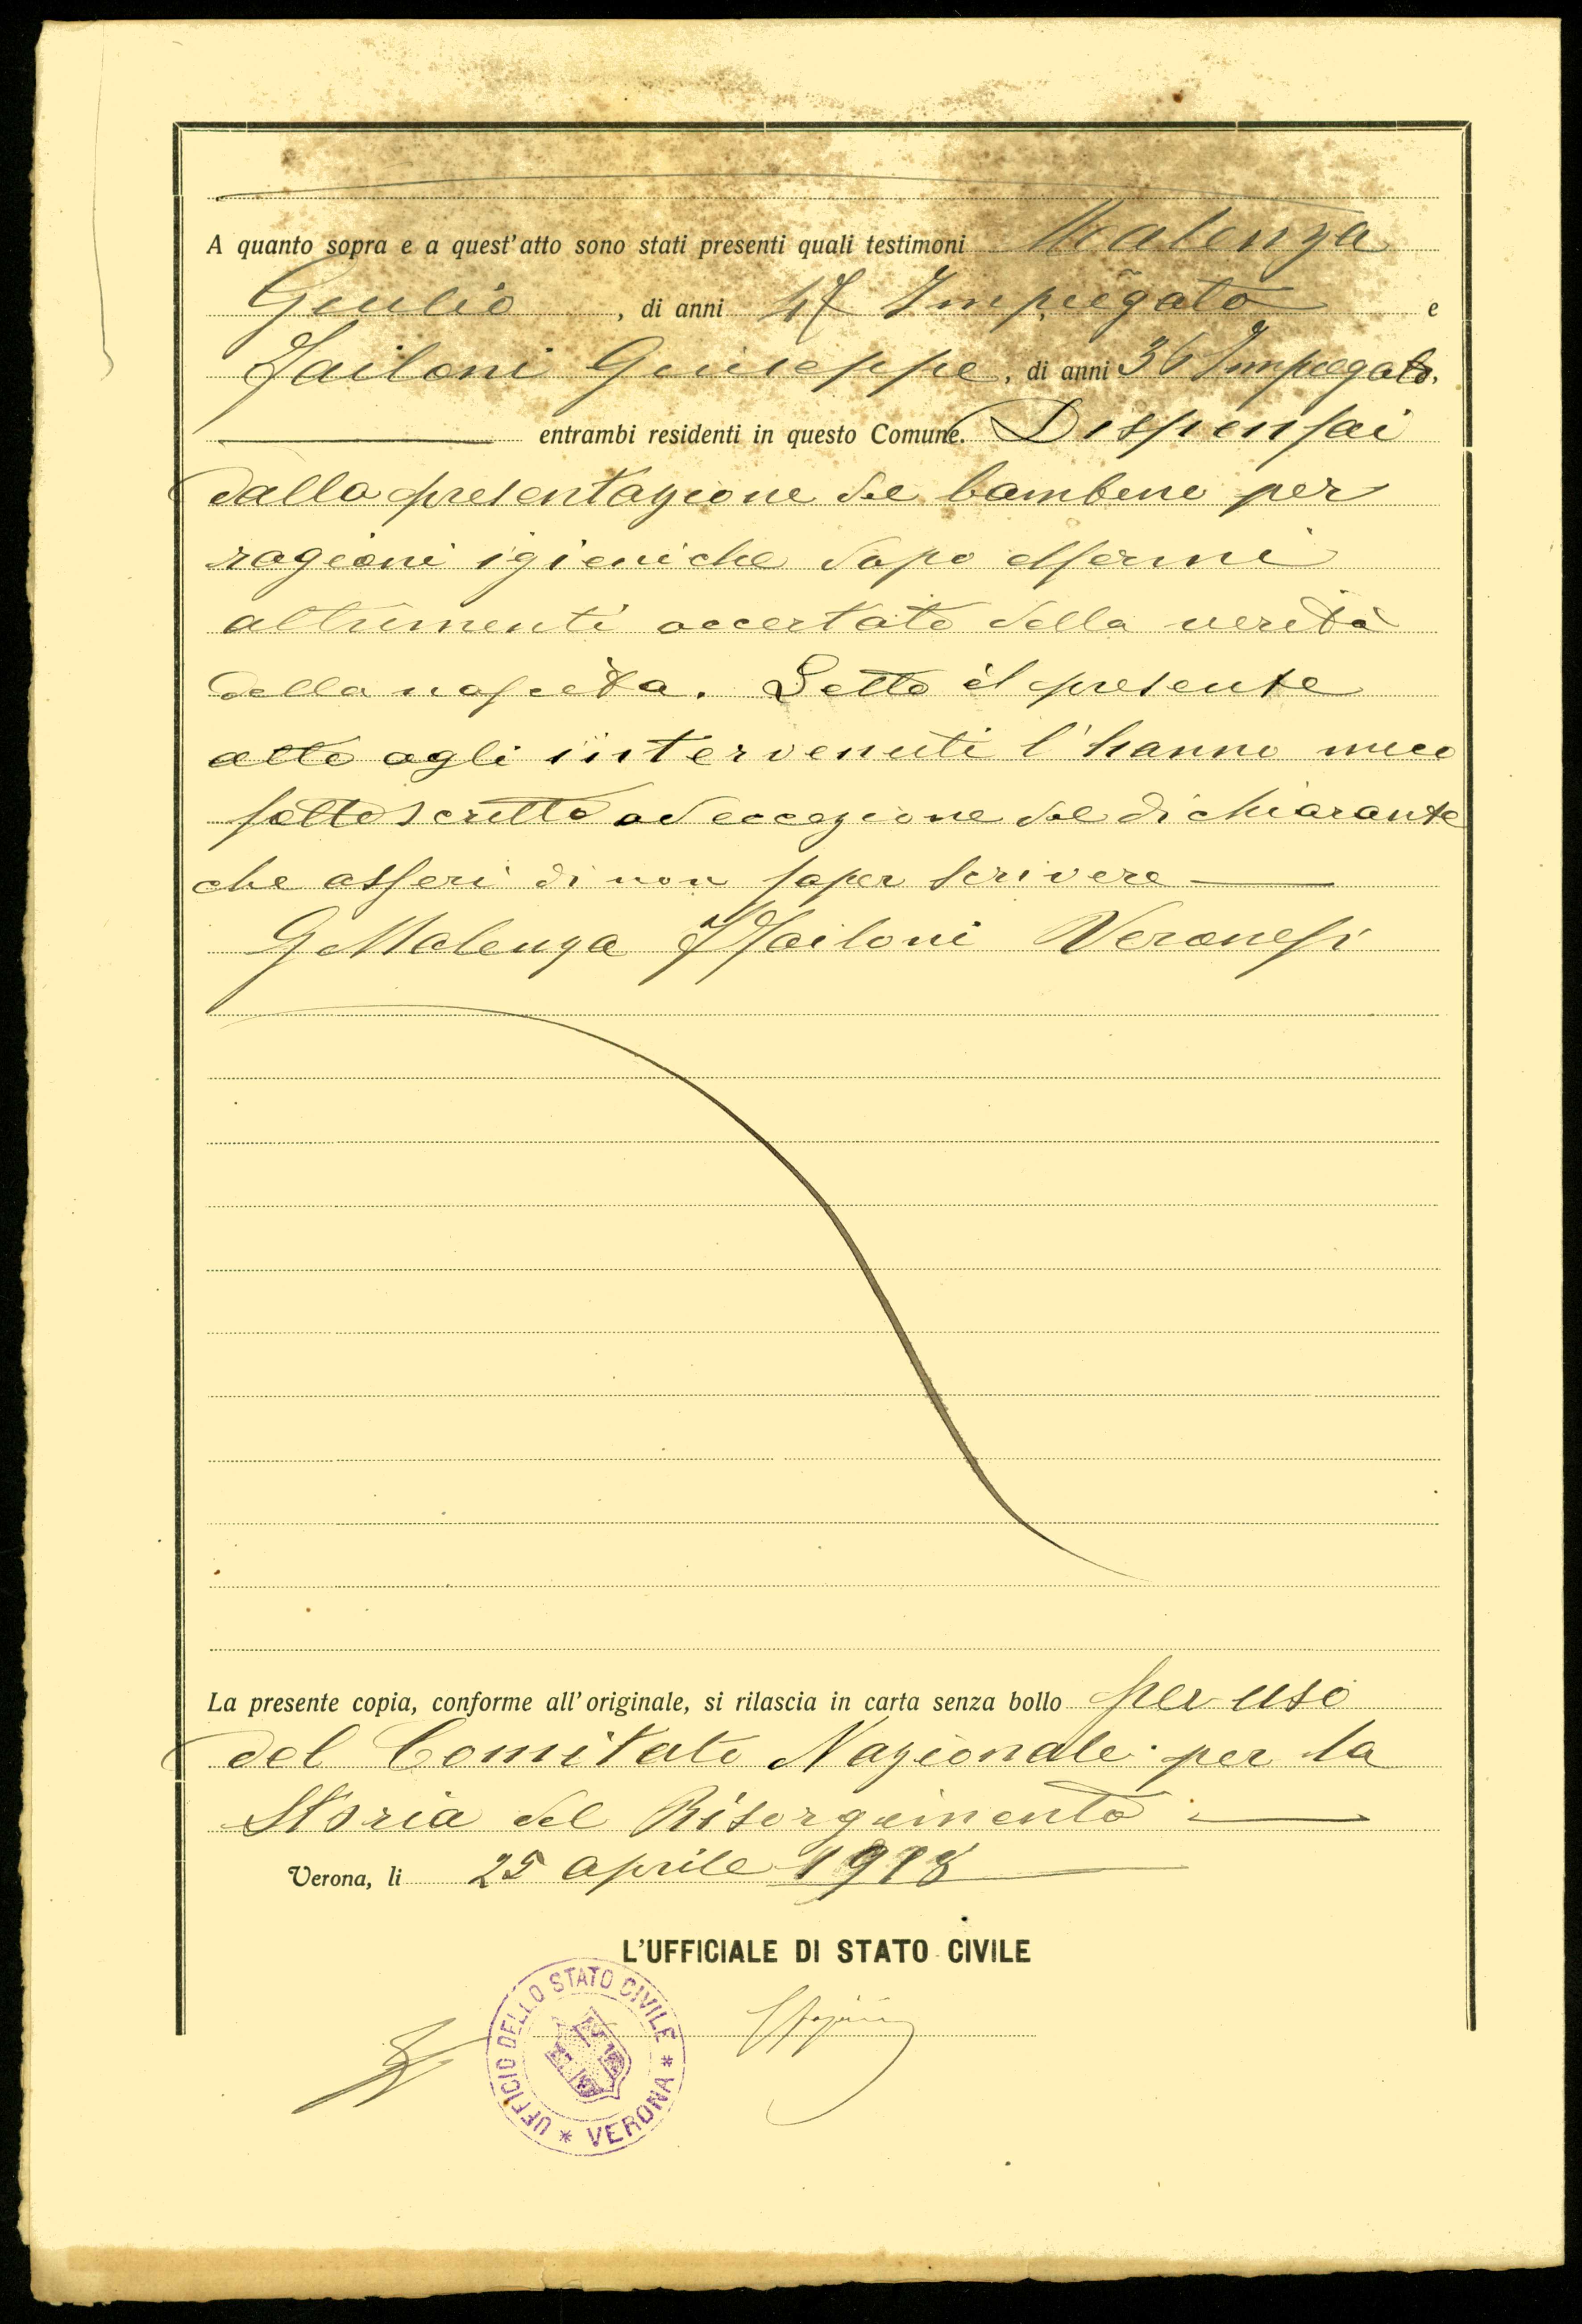 A quanto sopra e a quest'atto sono stati presenti quali testimoni Malenza
Giulio, di anni 47 Impiegato e
Zailoni Giuseppe, di anni 36 Impiegato,
entrambi residenti in questo Comune. Dispensai
dalla presentazione del bambino per
ragioni igieniche dopo essermi
altrimenti accertato della verità
della nascita. Letto il presente
atto agli intervenuti l'hanno meco
sottoscritto ad eccezione del dichiarante
che asserì di non saper scrivere
G Malenza G Zailoni Veronesi
La presente copia, conforme all'originale, si rilascia in carta senza bollo per uso
del Comitato Nazionale per la
Storia del Risorgimento
Verona, li 25 aprile 1918
L'UFFICIALE DI STATO CIVILE
UFFICIO DELLO STATO CIVILE * VERONA *